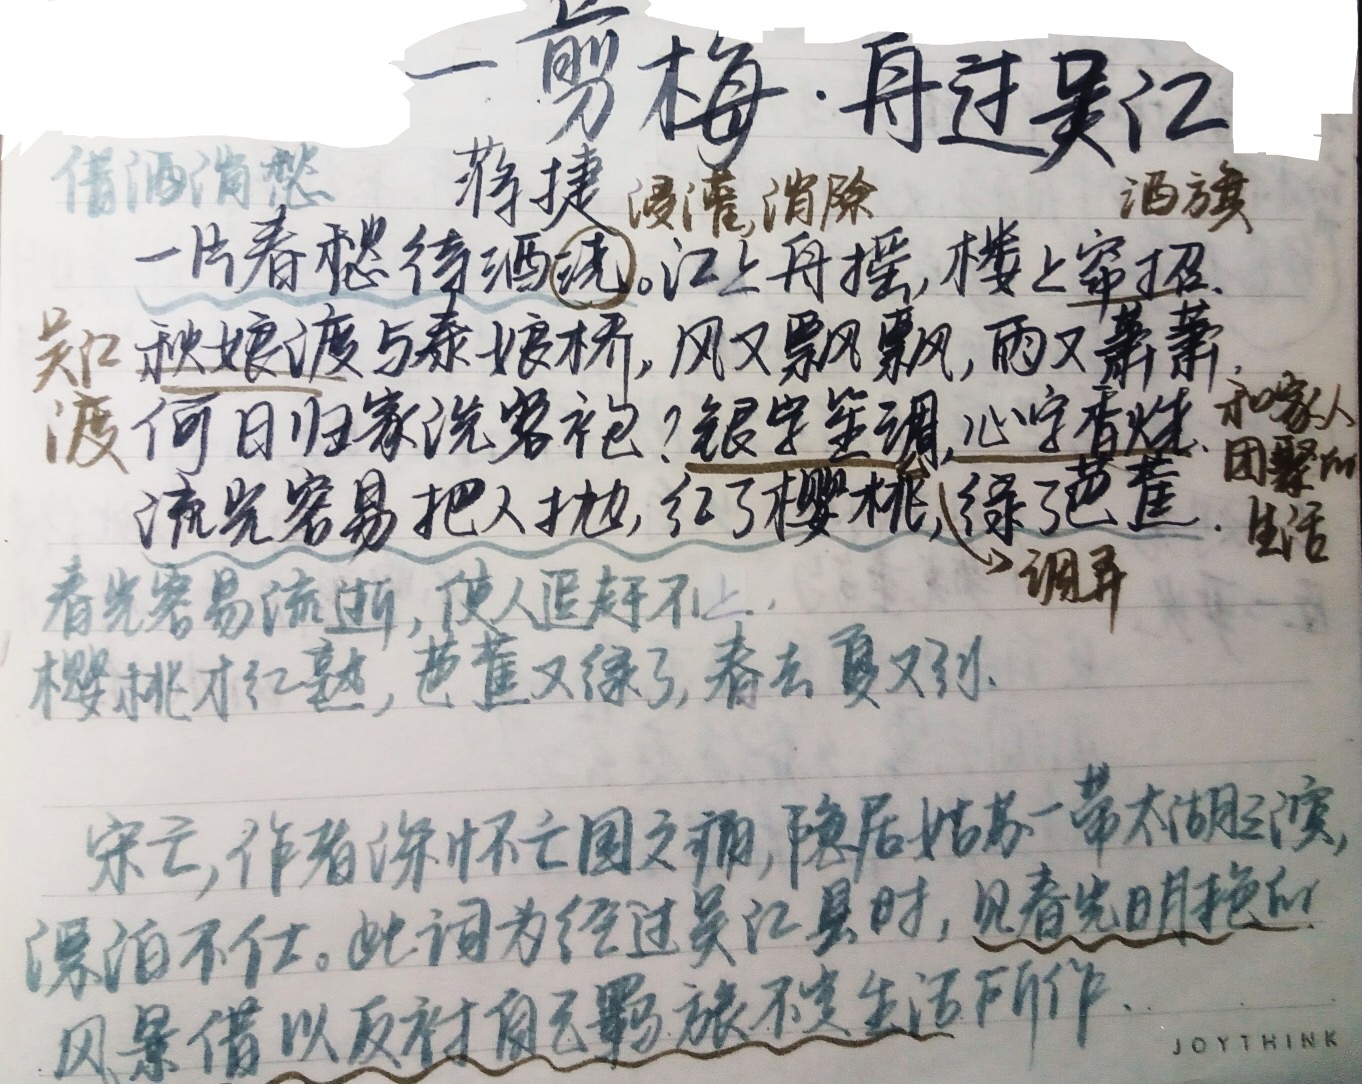 一剪梅·舟过吴江
借酒消愁 蒋捷 浸灌,消除 酒旗
一片春愁待酒浇。江上舟摇,楼上帘招.
吴江 秋娘渡与泰娘桥,风又飘飘,雨又萧萧,
渡 何日归家洗客袍?银字笙调,心字香烧.
和家人
团聚的
生活
流光容易把人抛,红了樱桃,绿了芭蕉.
调弄
春光容易流逝,使人追赶不上.
樱桃才红熟,芭蕉又绿了,春去夏又到.
宋亡,作者深怀亡国之痛,隐居姑苏一带太湖之滨,
漂泊不仕。此词为经过吴江县时,见春光明艳的
风景借以反衬自己羁旅不定生活所作.
JOYTHINK